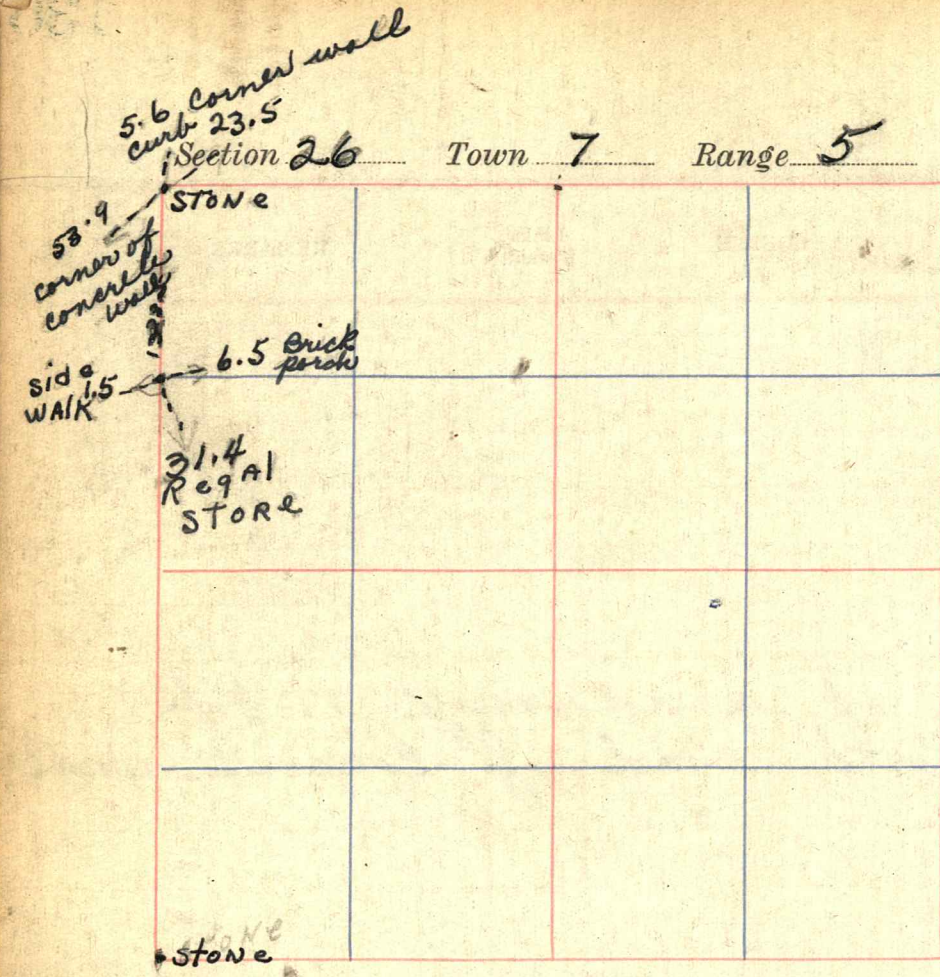 5.6 corner wall
curb 23.5
Section 26 Town 7 Range 5
STONe
53.9
corner of
concrete
wall
6.5 Brick
porch
side
WAlK 1.5
31.4
RegAl
STORe
stone